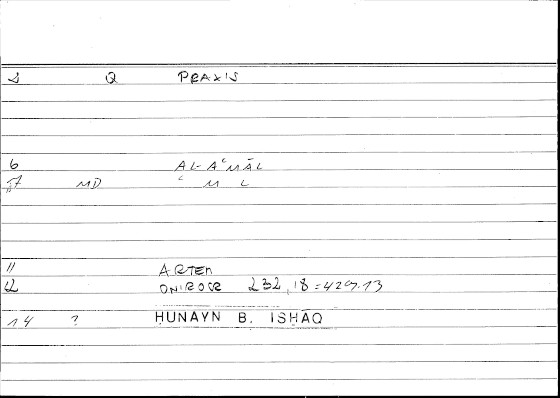 1 Q PRAXIS
6 AL-AʿMĀL
7 MD ʿ M L
11 ARTEM
12 ONIROCR 232,18=429.13
14 ? ḤUNAYN B. ISḤĀQ